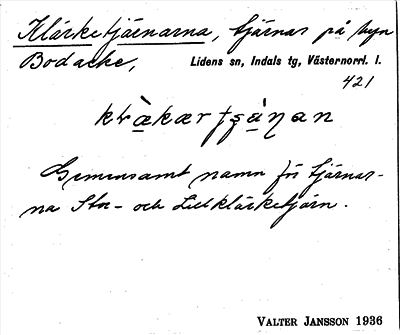 Klärketjärnarna, tjärnar på byn
Bodacke, Lidens sn, Indals tg, Västernorrl. l.
421
Gemensamt namn för tjärnar-
na Stor- och Lillklärketjärn.
VALTER JANSSON 1936